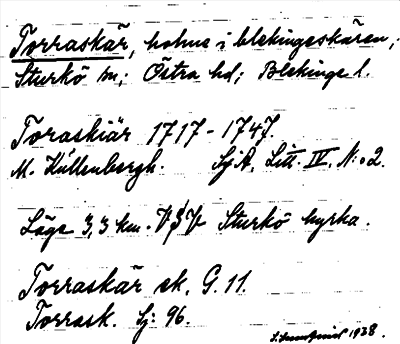 Torraskär, holme i blekingeskären,
Sturkö sn; Östra hd; Blekinge l.
Toraskiär 1717-1747.
M. Källenbergh. SjA, Litt. IV, N:o 2.
Läge 3,3 km. VSV Sturkö kyrka.
Torraskär ek. G. 11.
Torrask. Sj: 96.
1938.